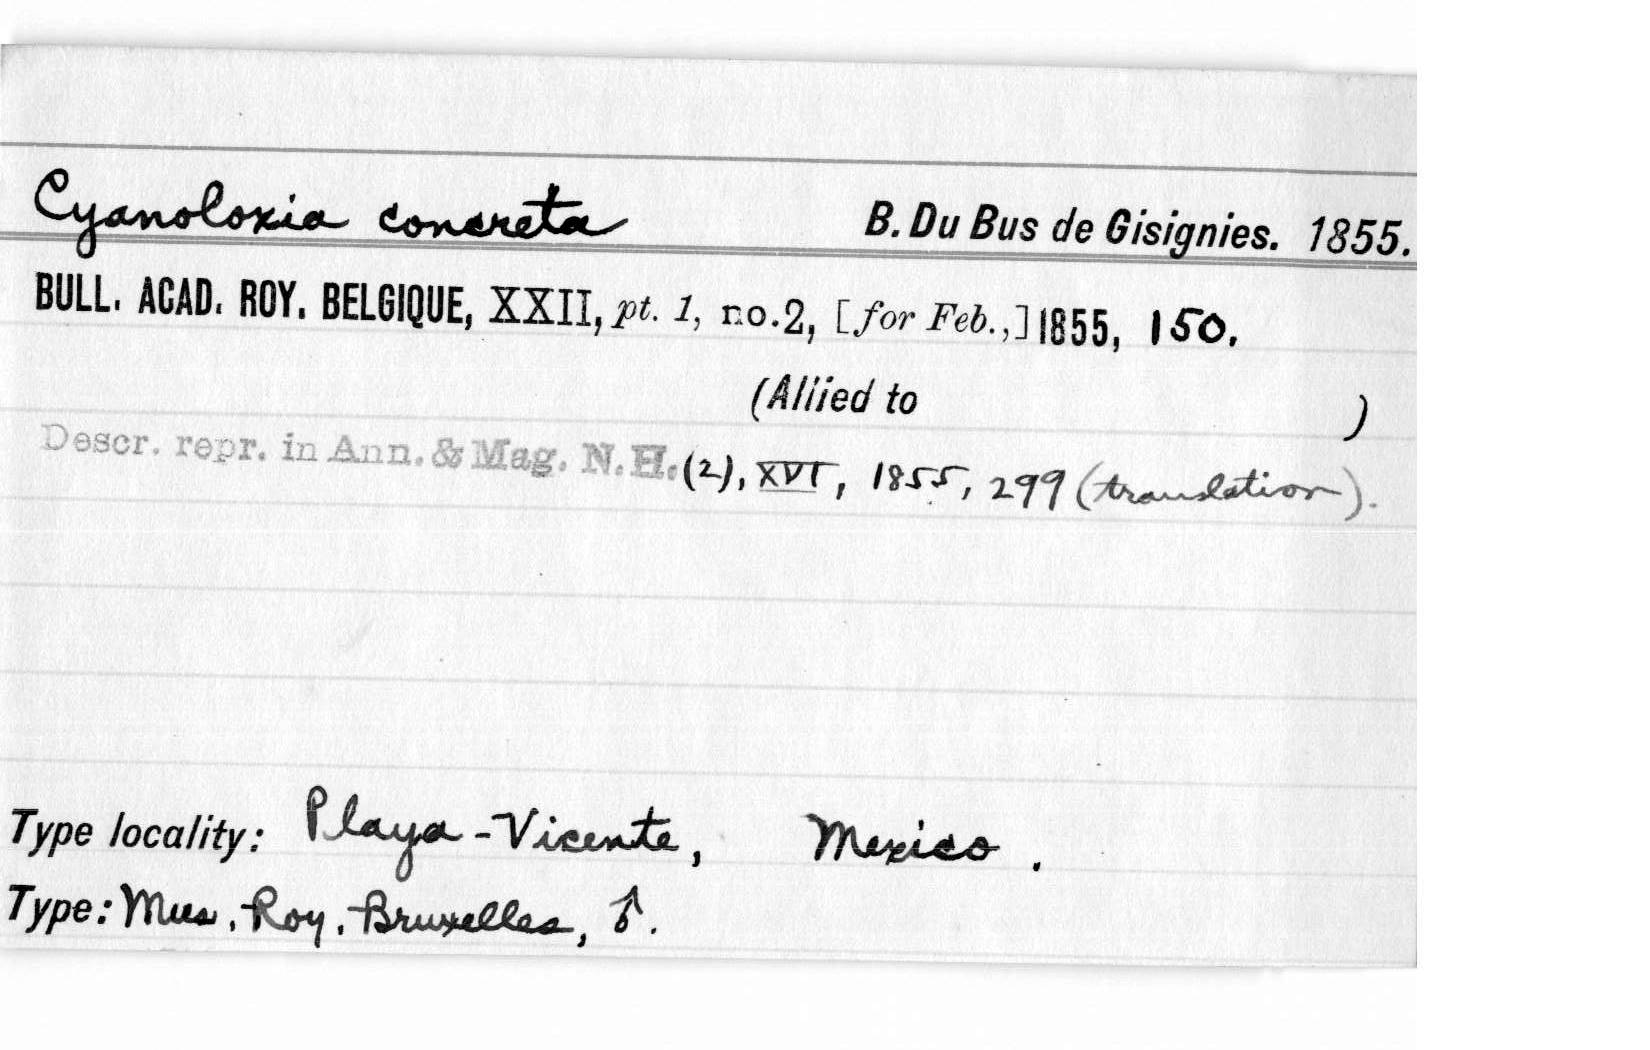 Cyanoloxia concreta B. Du Bus de Gisignies. 1855.
BULL. ACAD. ROY. BELGIQUE, XXII, pt. 1, no.2, [for Feb.,] 1855, 150.
(Allied to )
Descr. repr. in Ann. & Mag. N.H. (2), XVI, 1855, 299 (translation).
Type locality: Playa-Vicente, Mexico.
Type: Mus. Roy. Bruxelles, ♂.